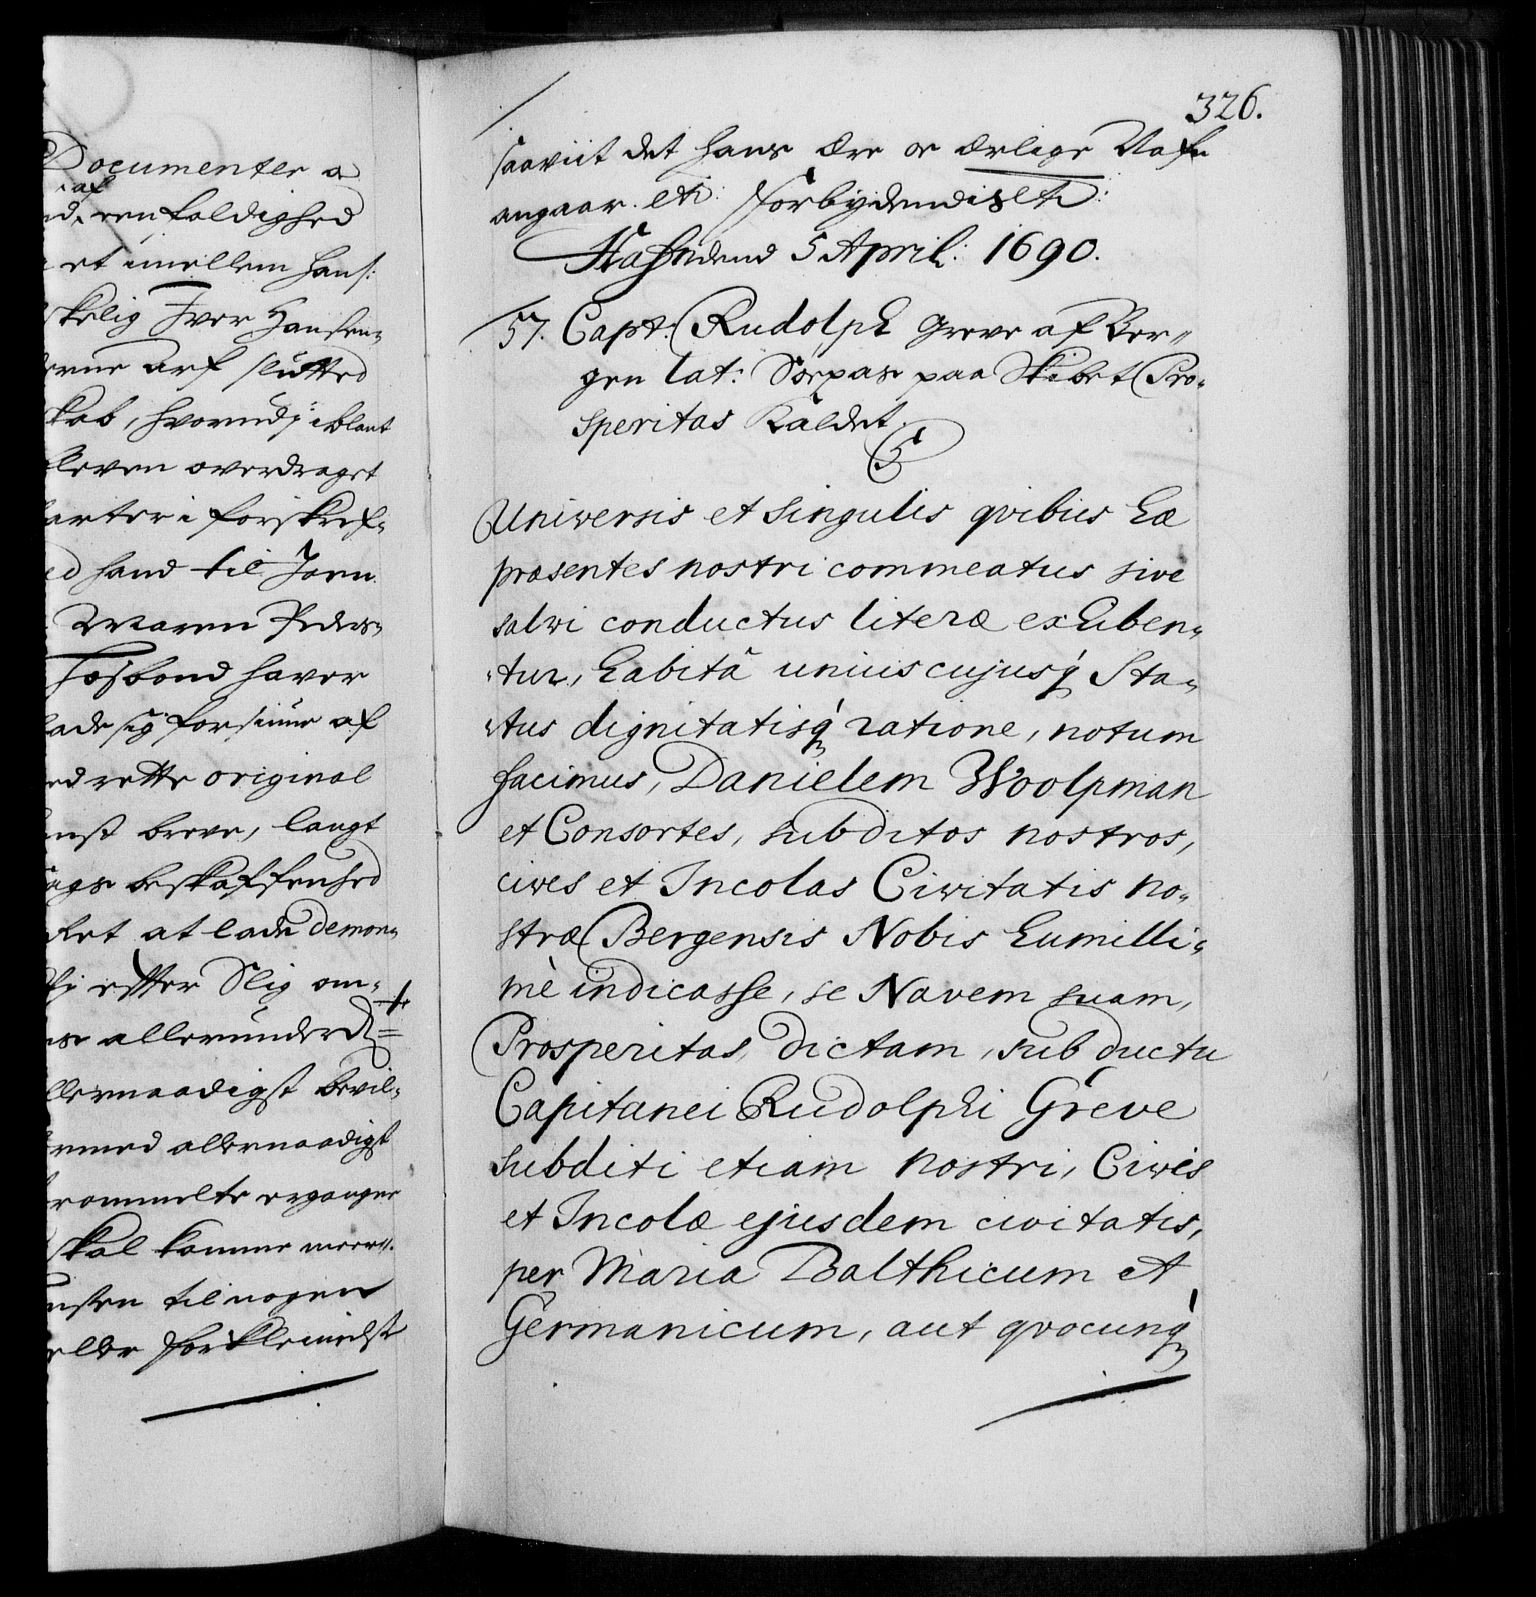 Documenter
eenfoldighed
et imellem hans:
skelig Iver Hansen=
arf slutted
skab, hvorudj iblant
bleven overdraget
parter i forskref=
hand til Jørn
Maren Peders=
Hosbond haver
lade sig forsiune af
rette original
breve, langt
beskaffenhed
at lade demon=
efter Slig om=
allerund
allernaadigst bevil=
allernaadigst
ergangne
skal komme
til nogen
eller forkleinelse
326.
saaviit det hans Ære oc ærlige Nafn
angaar. etc: Forbydendis etc:
Hafn dend 5 April: 1690.
57. Capt: Rudolph Greve af Ber=
gen lat: Søepas paa Skibet Pro=
speritas Kaldet.
5
Universis et Singulis qvibus hæ
præsentes nostri commeatus sive
salvi conductus literæ exhiben=
=tur, habitâ uniuscujusq́ Sta=
=tus dignitatisq́ ratione, notum
facimus, Danielem Woolpman
et Consortes, subditos nostros,
cives et Incolas Civitatis no=
stræ Bergensis Nobis humilli=
mè indicasse, se Navem suam,
Prosperitas dictam, sub ductu
Capitanei Rudolphi Greve
subditi etiam nostri, Civis
et Incolæ ejusdem civitatis,
per Maria Balthicum et
Germanicum, aut qvocunq́